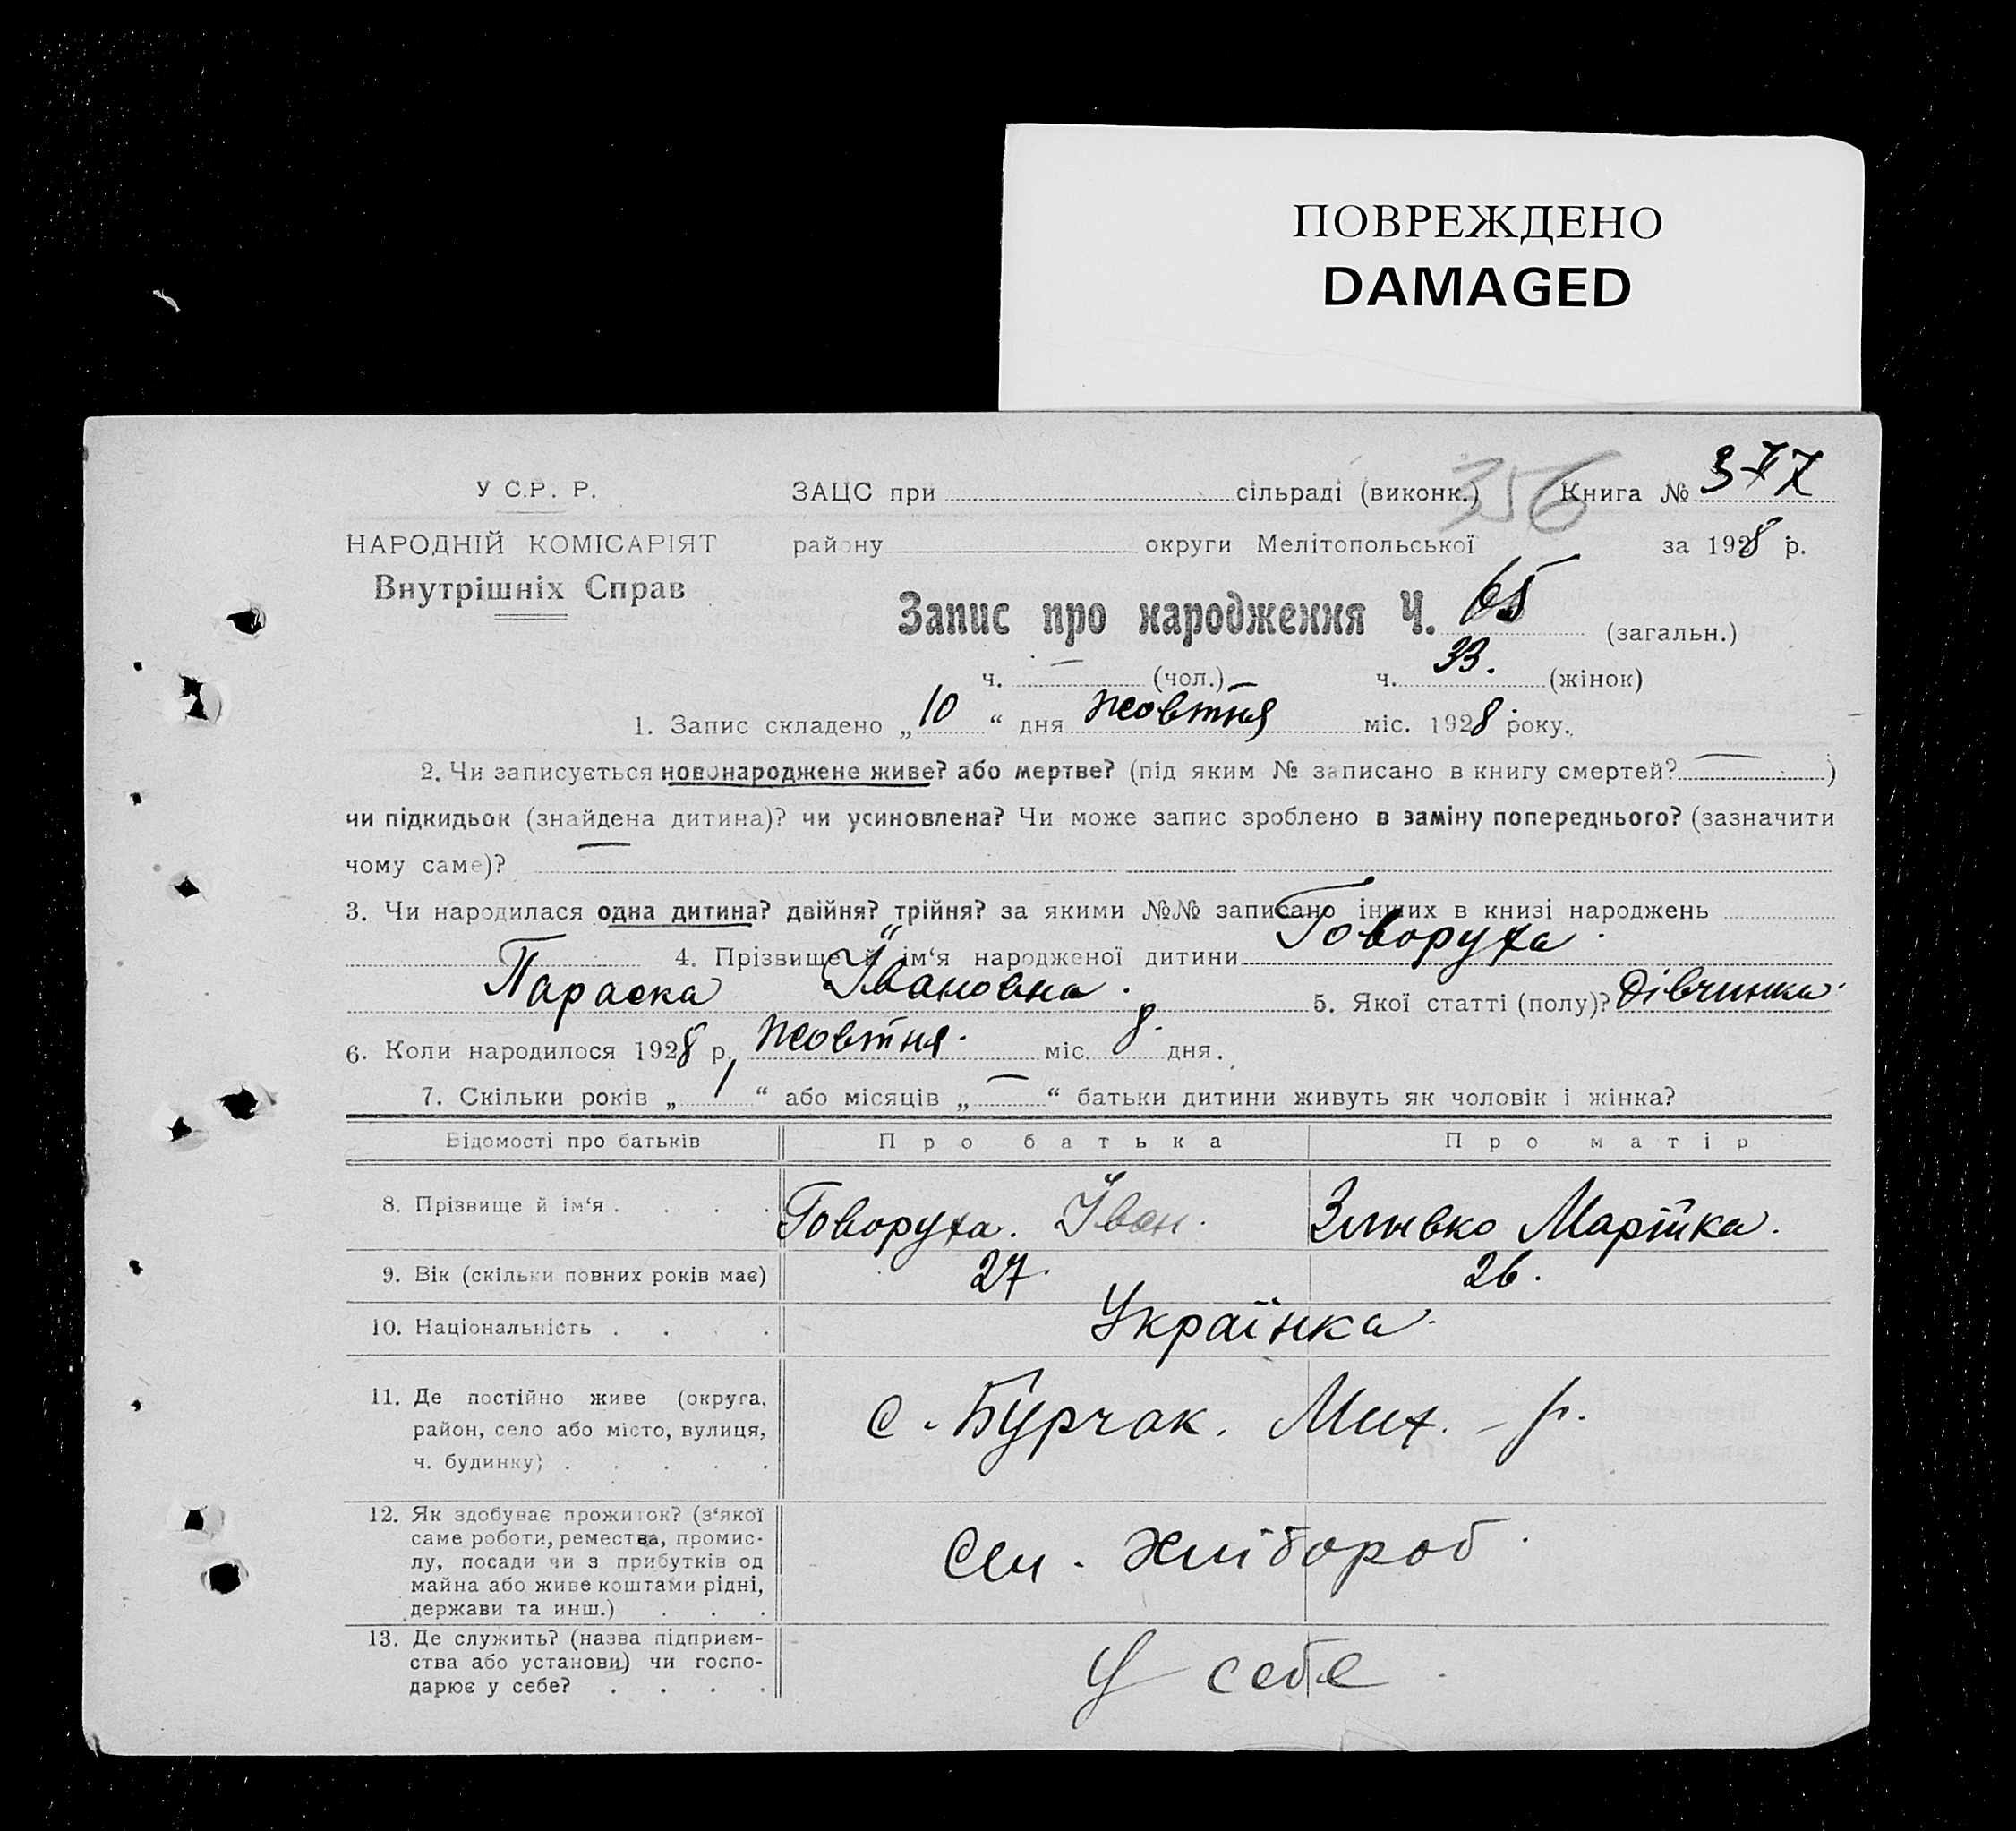 ПОВРЕЖДЕНО
DAMAGED
У С.Р. Р.
ЗАЦС при сільраді (виконк.) 356 Книга №
НАРОДНІЙ КОМІСАРІЯТ
району округи Мелітопольської за 1928 р.
Внутрішніх Справ
Запис про народження Ч. 65 (загальн.)
ч. — (чол.) ч. 33. (жінок)
1. Запис складено „ 10 “ дня жовтня міс. 1928 року.
2. Чи записується новонароджене живе? або мертве? (під яким № записано в книгу смертей? — )
чи підкидьок (знайдена дитина)? чи усиновлена? Чи може запис зроблено в заміну попереднього? (зазначити
чому саме)? —
3. Чи народилася одна дитина? двійня? трійня? за якими №№ записано інших в книзі народжень
4. Прізвище й ім‘я народженої дитини Говоруха.
Параска Івановна. 5. Якої статті (полу)? дівчинка.
6. Коли народилося 1928 р. жовтня. міс. 8. дня.
7. Скільки років „ 1 “ або місяців „ — “ батьки дитини живуть як чоловік і жінка?
Відомості про батьків Про батька Про матір
8. Прізвище й ім‘я . . . . Говоруха. Іван. Марійка.
9. Вік (скільки повних років має) 27. 26.
10. Національність . . . . Українка.
11. Де постійно живе (округа,
район, село або місто, вулиця,
ч. будинку) . . . . .
с. Бурчак. Мих. – р.
12. Як здобуває прожиток? (з‘якої
саме роботи, ремества, промис-
лу, посади чи з прибутків од
майна або живе коштами рідні,
держави та инш.) . . .
Сел. хлібороб.
13. Де служить? (назва підприєм-
ства або установи) чи госпо-
дарює у себе? . . . .
у себе.